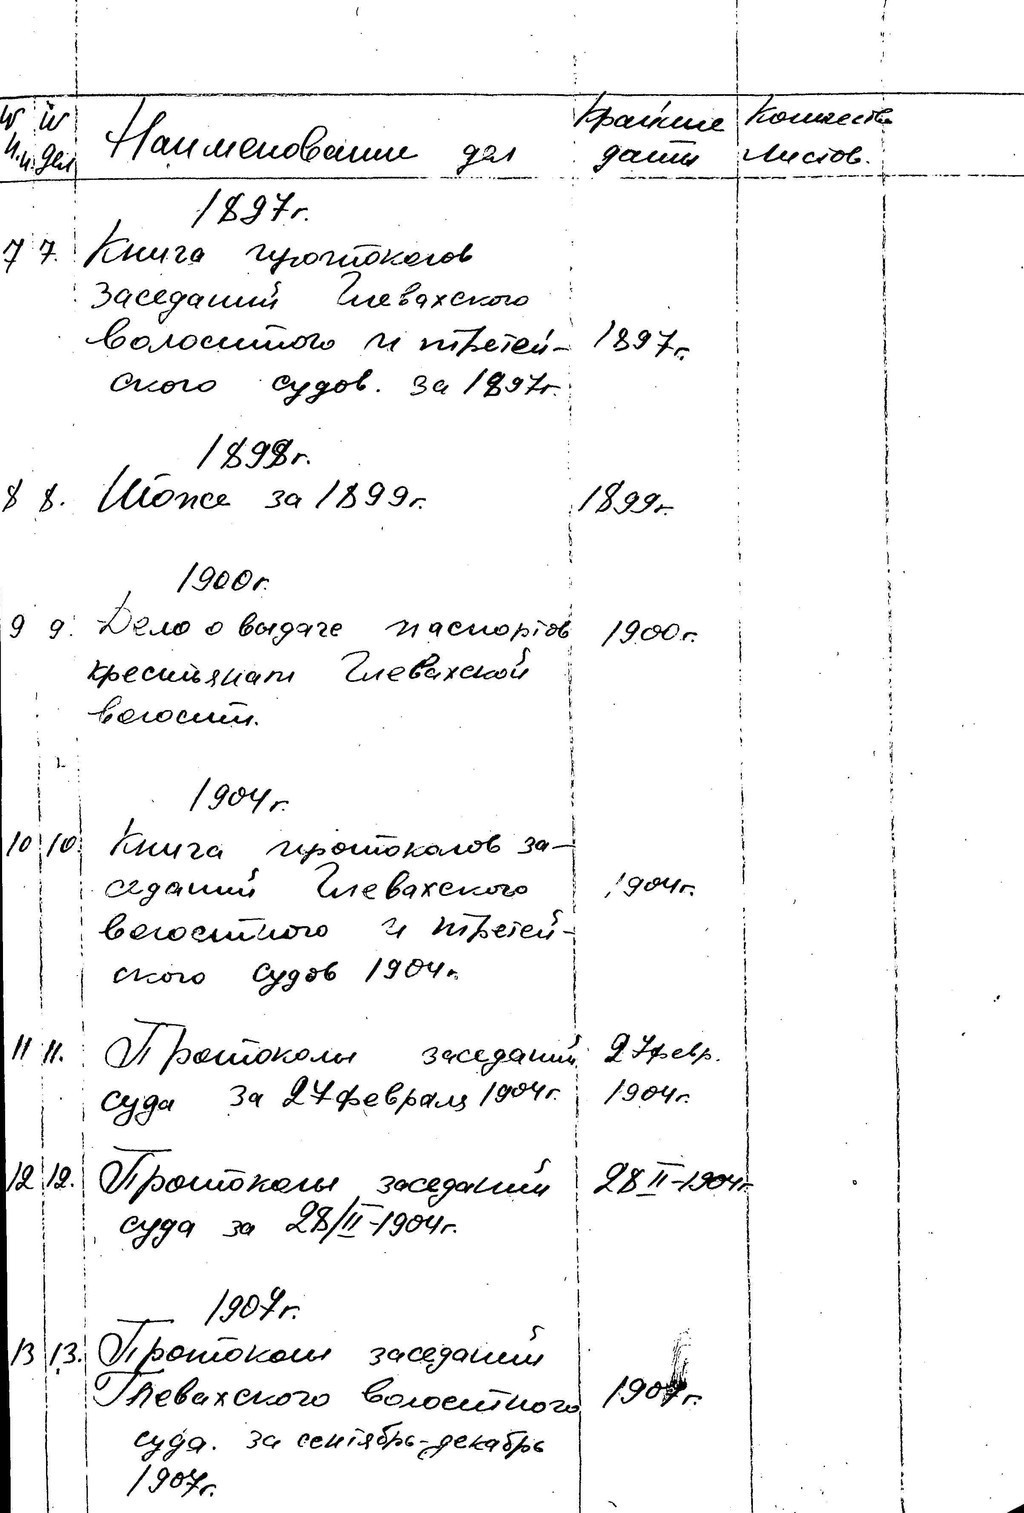 № № Наименование дел Крайние Количеств
п.п. дел даты листов.
1897г.
7 7. Книга протоколов
заседаний Глевахского
волостного и третей- 1897г.
ского судов. за 1897г.
1898г.
8 8. Тоже за 1899г. 1899г.
1900г.
9 9. Дело о выдаче паспортов 1900г.
крестьянам Глевахской
волости.
1904г.
10 10. Книга протоколов за-
седаний Глевахского 1904г.
волостного и третей-
ского судов 1904г.
11 11. Протоколы заседаний 27 февр.
суда за 27 февраля 1904г. 1904г.
12 12. Протоколы заседаний 28 II-1904г.
суда за 28/II-1904г.
1907г.
13 13. Протоколы заседаний
Глевахского волостного 1907г.
суда. за сентябрь-декабрь
1907г.